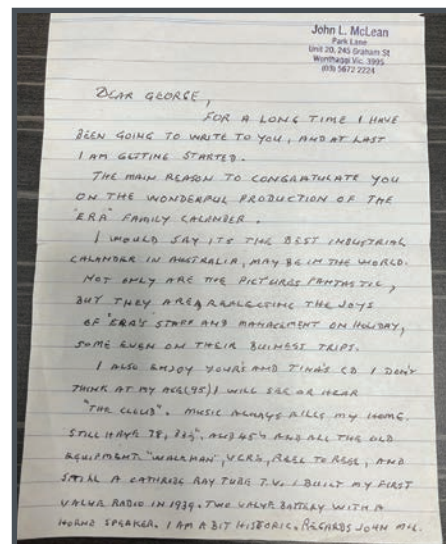 John L. McLean
Park Lane
Unit 20, 245 Graham St
Wonthaggi Vic. 3995
(03) 5672 2224
DEAR GEORGE,
FOR A LONG TIME I HAVE
BEEN GOING TO WRITE TO YOU, AND AT LAST
I AM GETTING STARTED.
THE MAIN REASON TO CONGRATULATE YOU
ON THE WONDERFUL PRODUCTION OF THE
"ERA" FAMILY CALANDER.
I WOULD SAY ITS THE BEST INDUSTRIAL
CALANDER IN AUSTRALIA, MAY BE IN THE WORLD.
NOT ONLY ARE THE PICTURES FANTASTIC,
BUT THEY ARE THE JOYS
OF "ERA'S" STAFF AND MANAGEMENT ON HOLIDAY,
SOME EVEN ON THEIR BUINESS TRIPS.
I ALSO ENJOY YOUR'S AND TINA'S CD I DON'T
THINK AT MY AGE (95) I WILL SEE OR HEAR
"THE CLOUD". MUSIC ALWAYS FILLS MY HOME.
STILL HAVE 78, 33⅓". AND 45'S AND ALL THE OLD
EQUIPMENT. "WALKMAN", VCR'S, REEL TO REEL, AND
STILL A CATHRODE RAY TUBE T.V. I BUILT MY FIRST
VALVE RADIO IN 1939. TWO VALVE BATTERY WITH A
HORNE SPEAKER. I AM A BIT HISTORIC. REGARDS JOHN McL.